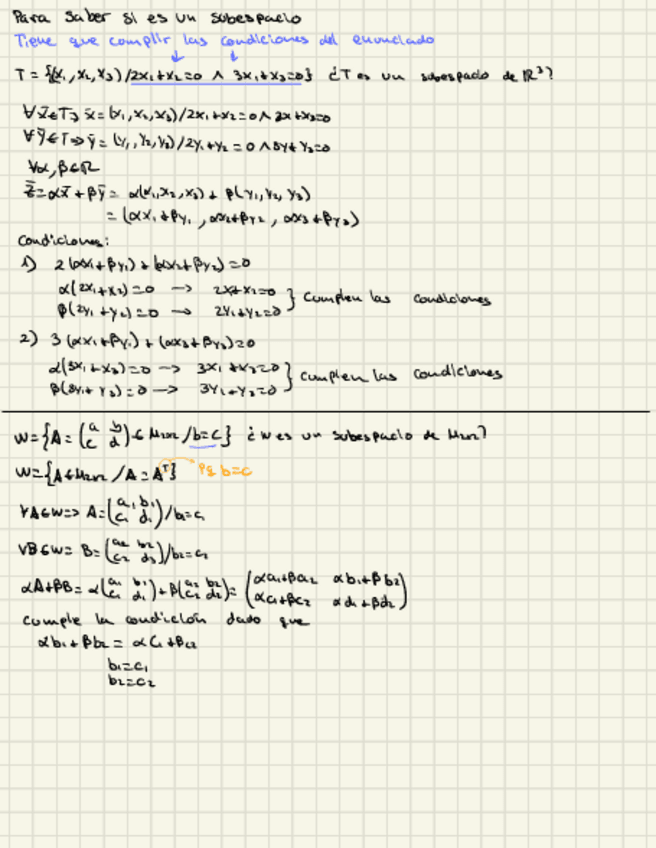 Para saber si es un subespacio
Tiene que complir las condiciones del enunciado
T = {(x₁, x₂, x₃) / 2x₁+x₂=0 ∧ 3x₁+x₃=0} ¿T es un subespacio de ℝ³?
∀x̄∈T⇒ x̄ = (x₁, x₂, x₃) / 2x₁+x₂=0 ∧ 3x+x₃=0
∀ȳ∈T⇒ ȳ = (y₁, y₂, y₃) / 2y₁+y₂ = 0 ∧ 3y+y₃=0
∀α, β∈ℝ
z̄ = αx̄ + βȳ = α(x₁, x₂, x₃) + β(y₁, y₂, y₃)
= (αx₁+βy₁, αx₂+βy₂, αx₃+βy₃)
Condiciones:
1) 2(αx₁+βy₁) + (αx₂+βy₂) = 0
α(2x₁+x₂)=0 → 2x+x₂=0 } Cumplen las condiciones
β(2y₁+y₂)=0 → 2y₁+y₂=0
2) 3(αx₁+βy₁) + (αx₃+βy₃)=0
α(3x₁+x₃)=0 → 3x₁+x₃=0 } cumplen las condiciones
β(3y₁+y₃)=0 → 3y₁+y₃=0
W = {A = (a b; c d) ∈ M₂ₓ₂ / b=c} ¿W es un subespacio de M₂ₓ₂?
W = {A∈M₂ₓ₂ / A = Aᵀ} Pq b=c
∀A∈W ⇒ A = (a₁ b₁; c₁ d₁) / b₁=c₁
∀B∈W = B = (a₂ b₂; c₂ d₂) / b₂=c₂
αA+βB = α(a₁ b₁; c₁ d₁) + β(a₂ b₂; c₂ d₂) = (αa₁+βa₂ αb₁+βb₂; αc₁+βc₂ αd₁+βd₂)
cumple la condición dado que
αb₁+βb₂ = αc₁+βc₂
b₁=c₁
b₂=c₂